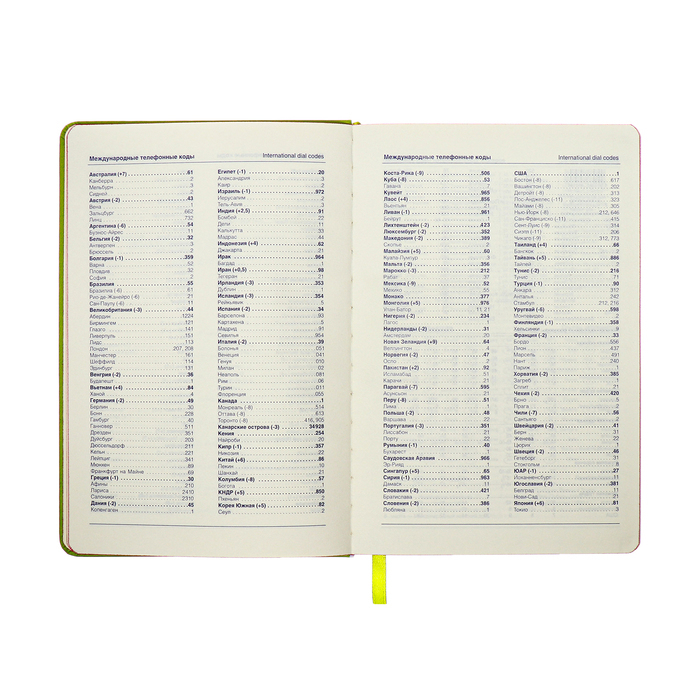 Международные телефонные коды International dial codes
Австралия (+7) 61
Канберра 2
Мельбурн 3
Сидней 2
Австрия (-2) 43
Вена 1
Зальцбург 662
Линц 732
Аргентина (-6) 54
Буэнос-Айрес 11
Бельгия (-2) 32
Антверпен 3
Брюссель 2
Болгария (-1) 359
Варна 52
Пловдив 32
София 2
Бразилия 55
Бразилиа (-6) 61
Рио-де-Жанейро (-6) 21
Сан-Паулу (-6) 11
Великобритания (-3) 44
Абердин 1224
Бирмингем 121
Глазго 141
Ливерпуль 151
Лидс 113
Лондон 207, 208
Манчестер 161
Шеффилд 114
Эдинбург 131
Венгрия (-2) 36
Будапешт 1
Вьетнам (+4) 84
Ханой 4
Германия (-2) 49
Берлин 30
Бонн 228
Гамбург 40
Ганновер 511
Дрезден 351
Дуйсбург 203
Дюссельдорф 211
Кельн 221
Лейпциг 341
Мюнхен 89
Франкфурт на Майне 69
Греция (-1) 30
Афины 210
Лариса 2410
Салоники 2310
Дания (-2) 45
Копенгаген 1
Египет (-1) 20
Александрия 3
Каир 2
Израиль (-1) 972
Иерусалим 2
Тель-Авив 3
Индия (+2,5) 91
Бомбей 22
Дели 11
Калькутта 33
Мадрас 44
Индонезия (+4) 62
Джакарта 21
Ирак 964
Багдад 1
Иран (+0,5) 98
Тегеран 21
Ирландия (-3) 353
Дублин 1
Исландия (-3) 354
Рейкьявик 5
Испания (-2) 34
Барселона 93
Картахена 5
Мадрид 91
Севилья 954
Италия (-2) 39
Болонья 051
Венеция 041
Генуя 010
Милан 02
Неаполь 081
Рим 06
Турин 011
Флоренция 055
Канада 1
Монреаль (-8) 514
Оттава (-8) 613
Торонто (-8) 416, 905
Канарские острова (-3) 34928
Кения 254
Найроби 20
Кипр (-1) 357
Никозия 22
Китай (+6) 86
Пекин 10
Шанхай 21
Колумбия (-8) 57
Богота 1
КНДР (+5) 850
Пхеньян 2
Корея Южная (+5) 82
Сеул 2
Международные телефонные коды International dial codes
Коста-Рика (-9) 506
Куба (-8) 53
Гавана 7
Кувейт 965
Лаос (+4) 856
Вьентьян 21
Ливан (-1) 961
Бейрут 1
Лихтенштейн (-2) 423
Люксембург (-2) 352
Македония (-2) 389
Скопье 2
Малайзия (+5) 60
Куала-Лумпур 3
Мальта (-2) 356
Марокко (-3) 212
Рабат 37
Мексика (-9) 52
Мехико 55
Монако 377
Монголия (+5) 976
Улан-Батор 11, 21
Нигерия (-2) 234
Лагос 1
Нидерланды (-2) 31
Амстердам 20
Новая Зеландия (+9) 64
Веллингтон 4
Норвегия (-2) 47
Осло 2
Пакистан (+2) 92
Исламабад 51
Карачи 21
Парагвай (-7) 595
Асунсьон 21
Перу (-8) 51
Лима 1
Польша (-2) 48
Варшава 22
Португалия (-3) 351
Лиссабон 21
Порту 22
Румыния (-1) 40
Бухарест 1
Саудовская Аравия 966
Эр-Рияд 1
Сингапур (+5) 65
Сирия (-1) 963
Дамаск 11
Словакия (-2) 421
Братислава 7
Словения (-2) 386
Любляна 1
США 1
Бостон (-8) 617
Вашингтон (-8) 202
Детройт (-8) 313
Лос-Анджелес (-11) 323
Майами (-8) 305
Нью-Йорк (-8) 212, 646
Сан-Франциско (-11) 415
Сент-Луис (-9) 314
Сиэтл (-11) 206
Чикаго (-9) 312, 773
Таиланд (+4) 66
Бангкок 2
Тайвань (+5) 886
Тайпей 2
Тунис (-2) 216
Тунис 71
Турция (-1) 90
Анкара 312
Анталья 242
Стамбул 212, 216
Уругвай (-6) 598
Монтевидео 2
Финляндия (-1) 358
Хельсинки 9
Франция (-2) 33
Бордо 556
Лион 437
Марсель 491
Нант 240
Париж 1
Хорватия (-2) 385
Загреб 1
Сплит 21
Чехия (-2) 420
Брно 5
Прага 2
Чили (-7) 56
Сантьяго 2
Швейцария (-2) 41
Берн 31
Женева 22
Цюрих 1
Швеция (-2) 46
Гетеборг 31
Стокгольм 8
ЮАР (-1) 27
Йоханнесбург 11
Югославия (-2) 381
Белград 11
Нови-Сад 21
Япония (+6) 81
Токио 3